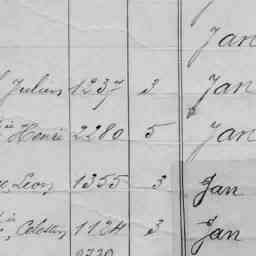 Jan
Julien 1237 3 Jan
Henri 2280 5 Jan
Leon, 1355 3 Jan
Celestin, 1124 3 Jan